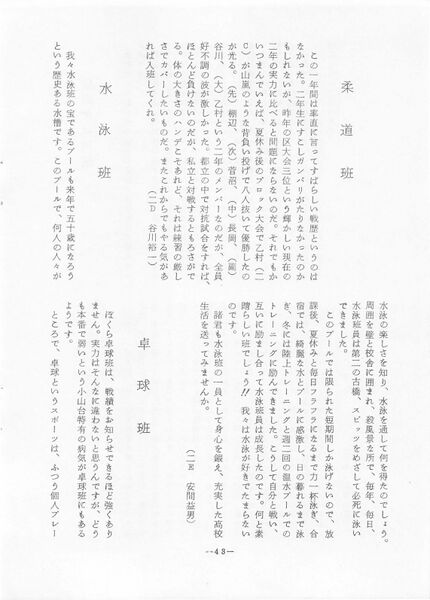 柔道班
この一年間は率直に言ってすばらしい戦歴というのは
なかった。二年生にすこしガンバリがたりなかったのか
もしれないが、昨年の区大会三位という輝かしい現在の
二年の実力に比べると問題にならないのだ。それでもか
いつまんでいえば、夏休み後のブロック大会で乙村(二
C)が山嵐のような背負い投げで八人抜いて優勝したの
が光る。(先)棚辺、(次)菅沼、(中)長岡、(副)
谷川、(大)乙村という二年のメンバーなのだが、全員
好不調の波が激しかった。都立の中で対抗試合をすれば、
ほとんど負けないのだが、私立と対戦するともろさがで
る。体の大きさのハンデこそあれど、それは練習の厳し
さでカバーしたいものだ。またこれからでもやる気があ
れば入班してくれ。
(二D 谷川裕一)
水泳班
我々水泳班の宝であるプールも来年で五十歳になろう
という歴史ある水槽です。このプールで、何人の人々が
水泳の楽しさを知り、水泳を通して何を得たのでしょう。
周囲を壁と校舎に囲まれ、殺風景な所で、毎年、毎日、
水泳班員は第二の古橋、スピッツをめざして必死に泳い
できました。
このプールでは限られた短期間しか泳げないので、放
課後、夏休みと毎日フラフラになるまで力一杯泳ぎ、合
宿では、綺麗な水とプールに感激し、日の暮れるまで泳
ぎ、冬には陸上トレーニングと週二回の温水プールでの
トレーニングに励んできました。こうして自分と戦い、
互いに励まし合って水泳班員は成長したのです。何と素
晴らしい班でしょう!!我々は水泳が好きでたまらない
のです。
諸君も水泳班の一員として身心を鍛え、充実した高校
生活を送ってみませんか。
(二E 安間益男)
卓球班
ぼくら卓球班は、戦績をお知らせできるほど強くあり
ません。実力はそんなに違わないと思うんですが、どう
も本番で弱いという小山台特有の病気が卓球班にもある
ようです。
ところで、卓球というスポーツは、ふつう個人プレー
—43—